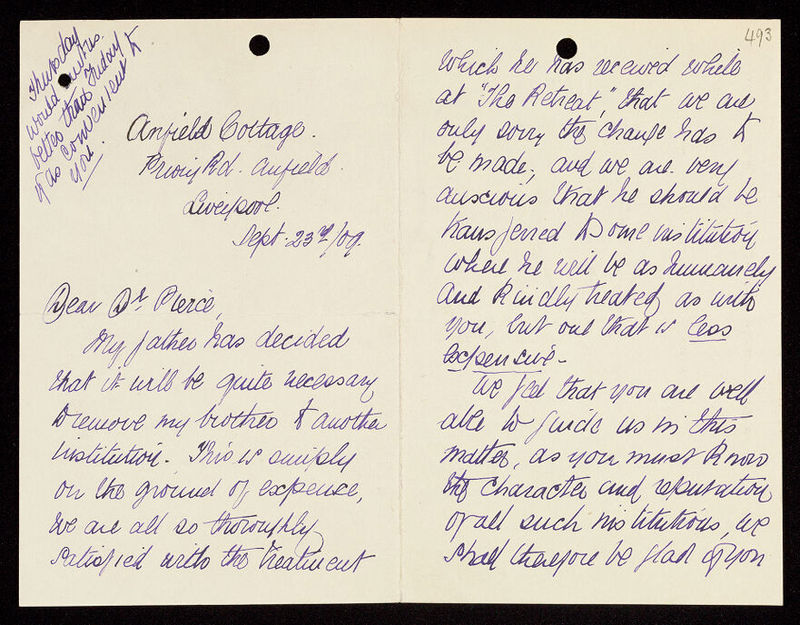 Thursday
would suit us
better than Friday
if as convenient to
you.
Anfield Cottage.
Priory Rd. Anfield.
Liverpool.
Sept. 23rd/09.
Dear Dr. Pierce,
My father has decided
that it will be quite necessary
to remove my brother to another
institution. This is simply
on the ground of expense,
we are all so thoroughly
satisfied with the treatment
493
which he has received while
at "The Retreat", that we are
only sorry the change has to
be made, and we are very
anxious that he should be
transferred to some institution
where he will be as humanely
and kindly treated as with
you, but one that is less
expensive.
We feel that you are well
able to guide us in this
matter, as you must know
the character and reputation
of all such institutions, we
shall therefore be glad if you